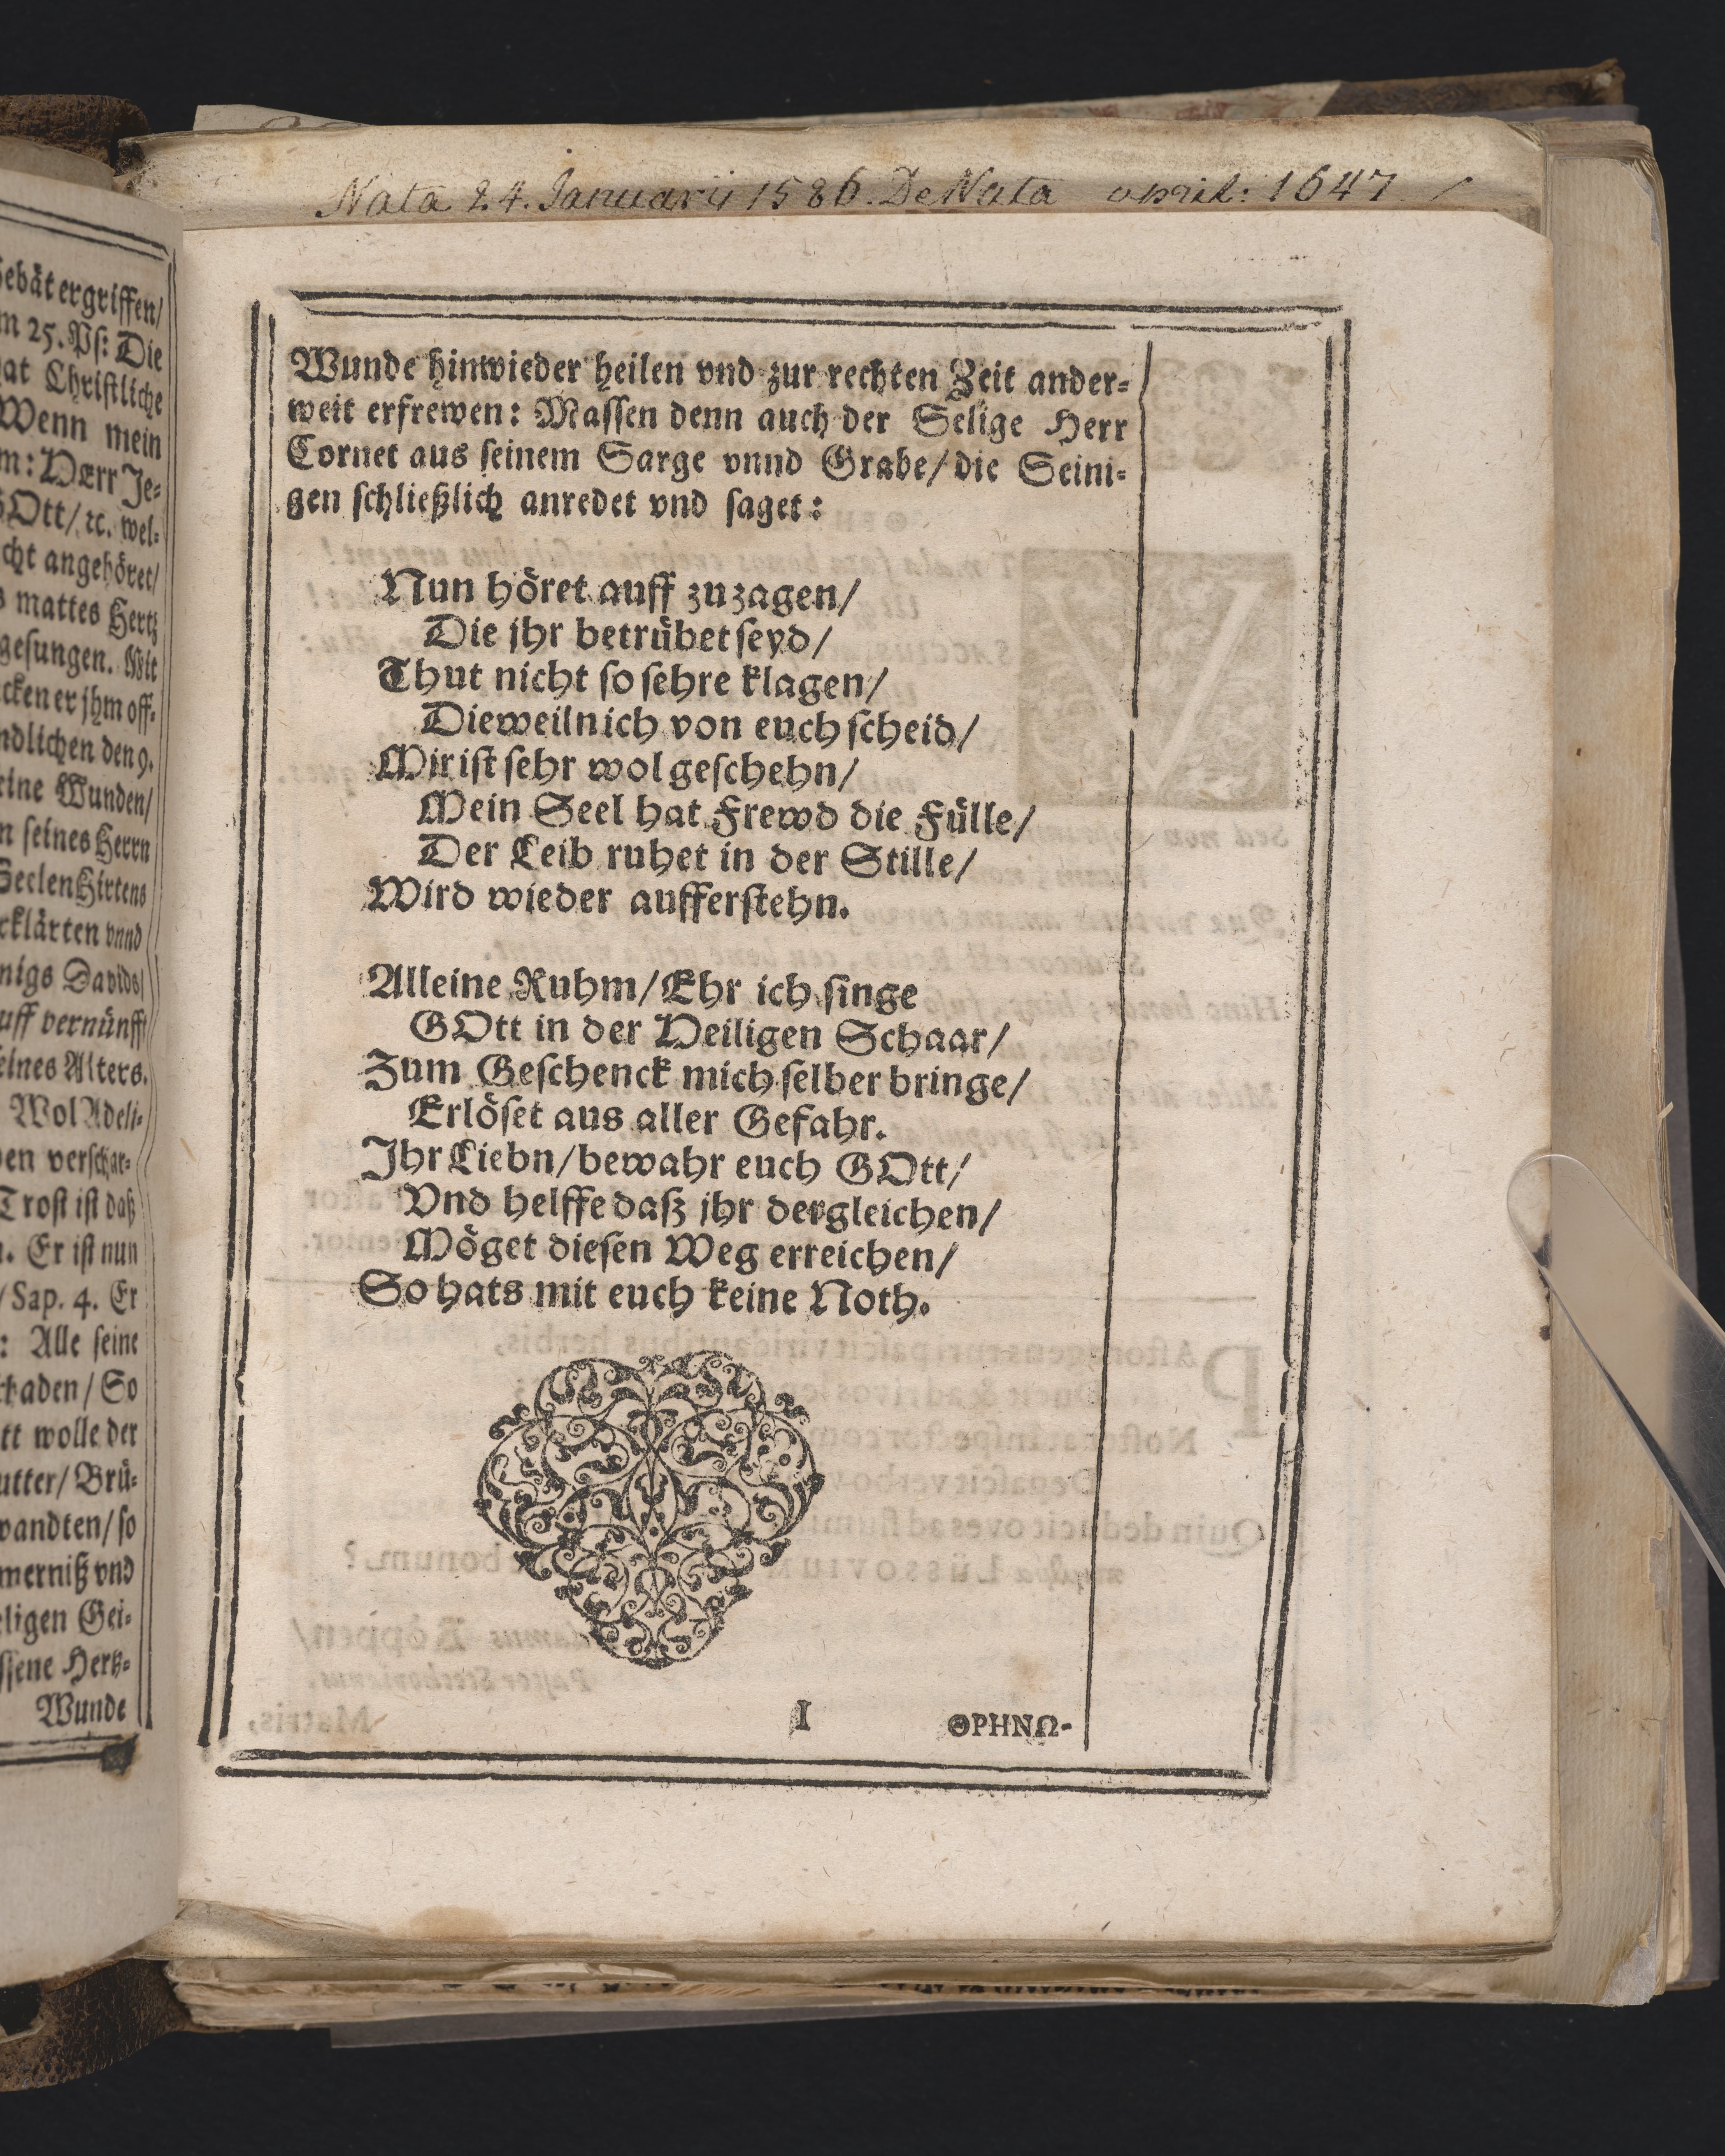 Nata 24. Januarij 1586. De Nata april: 1647
ebät ergriffen/
m 25. Ps: Die
at Christliche
Wenn mein
m: HErr Je-
GOtt/ ꝛc. wel-
cht angehöret/
s mattes Hertz
gesungen. Mit
cken er jhm off-
ndlichen den 9.
eine Wunden/
n seines Herrn
Seelen Hirtens
rklärten vnnd
nigs Davids/
uff vernünff
eines Alters.
Wol Adeli-
en verschar-
Trost ist daß
n. Er ist nun
/ Sap. 4. Er
: Alle seine
rkaden / So
tt wolle der
utter/ Brü-
wandten/ so
merniß vnd
eligen Gei-
ssene Hertz-
Wunde
Wunde hinwieder heilen vnd zur rechten Zeit ander-
weit erfrewen: Massen denn auch der Selige Herr
Cornet aus seinem Sarge vnnd Grabe/ die Seini-
gen schließlich anredet vnd saget:
Nun höret auff zuzagen/
Die jhr betrübet seyd/
Thut nicht so sehre klagen/
Dieweiln ich von euch scheid/
Mir ist sehr wol geschehn/
Mein Seel hat Frewd die Fülle/
Der Leib ruhet in der Stille/
Wird wieder aufferstehn.
Alleine Ruhm/ Ehr ich singe
GOtt in der Heiligen Schaar/
Zum Geschenck mich selber bringe/
Erlöset aus aller Gefahr.
Ihr Liebn/ bewahr euch GOtt/
Vnd helffe daß jhr dergleichen/
Möget diesen Weg erreichen/
So hats mit euch keine Noth.
I ΘΡΗΝΩ-